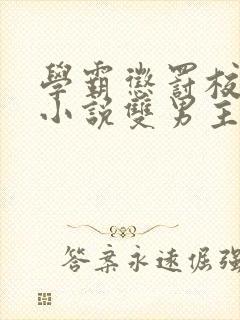 學霸懲罰校
小說雙男主
答案永遠倔強